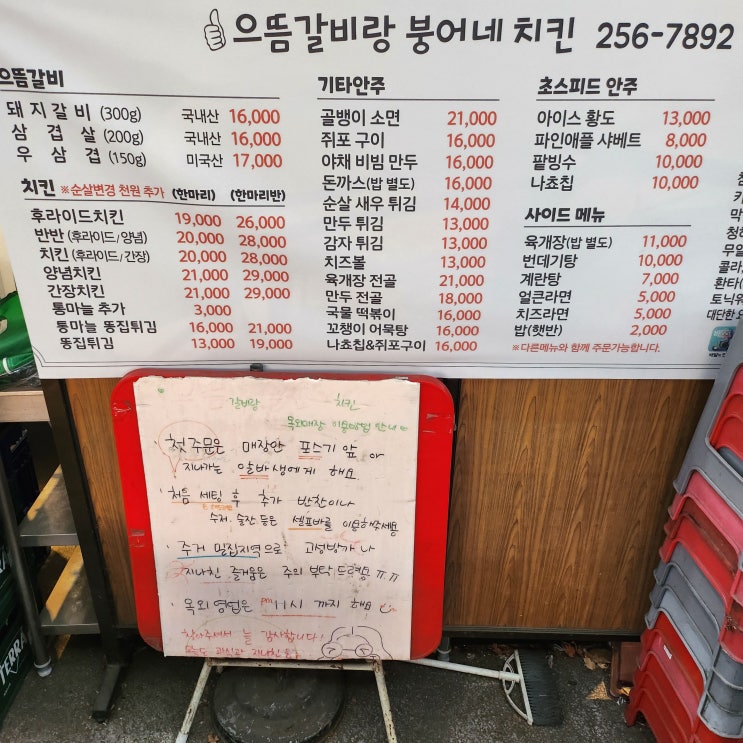 으뜸갈비랑 붕어네 치킨 256-7892
으뜸갈비
돼지갈비 (300g) 국내산 16,000
삼겹살 (200g) 국내산 16,000
우삼겹 (150g) 미국산 17,000
치킨 ※순살변경 천원 추가 (한마리) (한마리반)
후라이드치킨 19,000 26,000
반반 (후라이드/양념) 20,000 28,000
치킨 (후라이드/간장) 20,000 28,000
양념치킨 21,000 29,000
간장치킨 21,000 29,000
통마늘 추가 3,000
통마늘 똥집튀김 16,000 21,000
똥집튀김 13,000 19,000
기타안주
골뱅이 소면 21,000
쥐포 구이 16,000
야채 비빔 만두 16,000
돈까스(밥 별도) 16,000
순살 새우 튀김 14,000
만두 튀김 13,000
감자 튀김 13,000
치즈볼 13,000
육개장 전골 21,000
만두 전골 18,000
국물 떡볶이 16,000
꼬챙이 어묵탕 16,000
나쵸칩&쥐포구이 16,000
초스피드 안주
아이스 황도 13,000
파인애플 샤베트 8,000
팥빙수 10,000
나쵸칩 10,000
사이드 메뉴
육개장(밥 별도) 11,000
번데기탕 10,000
계란탕 7,000
얼큰라면 5,000
치즈라면 5,000
밥(햇반) 2,000
※다른메뉴와 함께 주문가능합니다.
갈비랑 치킨
옥외매장 이용방법 안내
첫 주문은 매장안 포스기 앞 or
지나가는 알바생에게 해요
처음 세팅 후 추가 반찬이나
수저, 술잔 등은 셀프바를 이용해주세용
주거 밀집지역으로 고성방가나
지나친 즐거움은 주의 부탁드려용 ㅠㅠ
옥외 영업은 pm 11시 까지 해요
찾아주셔서 늘 감사합니다!
TERRA